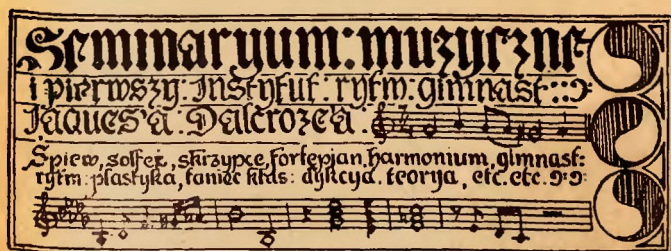 Seminaryum: muzyczne
i pierwszy: Instytut: rytm: gimnast:::
Jaques'a: Dalcroze'a:
Śpiew, solfeż, skrzypce, fortepjan, harmonium, gimnast:
rytm: plastyka, taniec klas: dykcya, teorya, etc. etc.